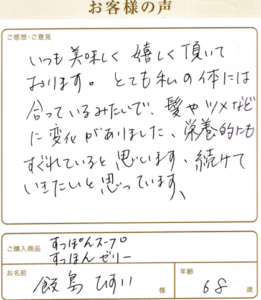 お客様の声
ご感想・ご意見
いつも美味しく 嬉しく頂いて
おります。 とても私の体には
合っているみたいで、髪やツメなど
に変化がありました、栄養的にも
すぐれていると思います、続けて
いきたいと思っています、
ご購入商品
すっぽんスープ
すっぽんゼリー
お名前
飯島 ひすい 様
年齢
68 歳